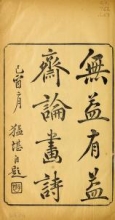 無益有益
齋論畫詩
己酉六月
猛堪自題